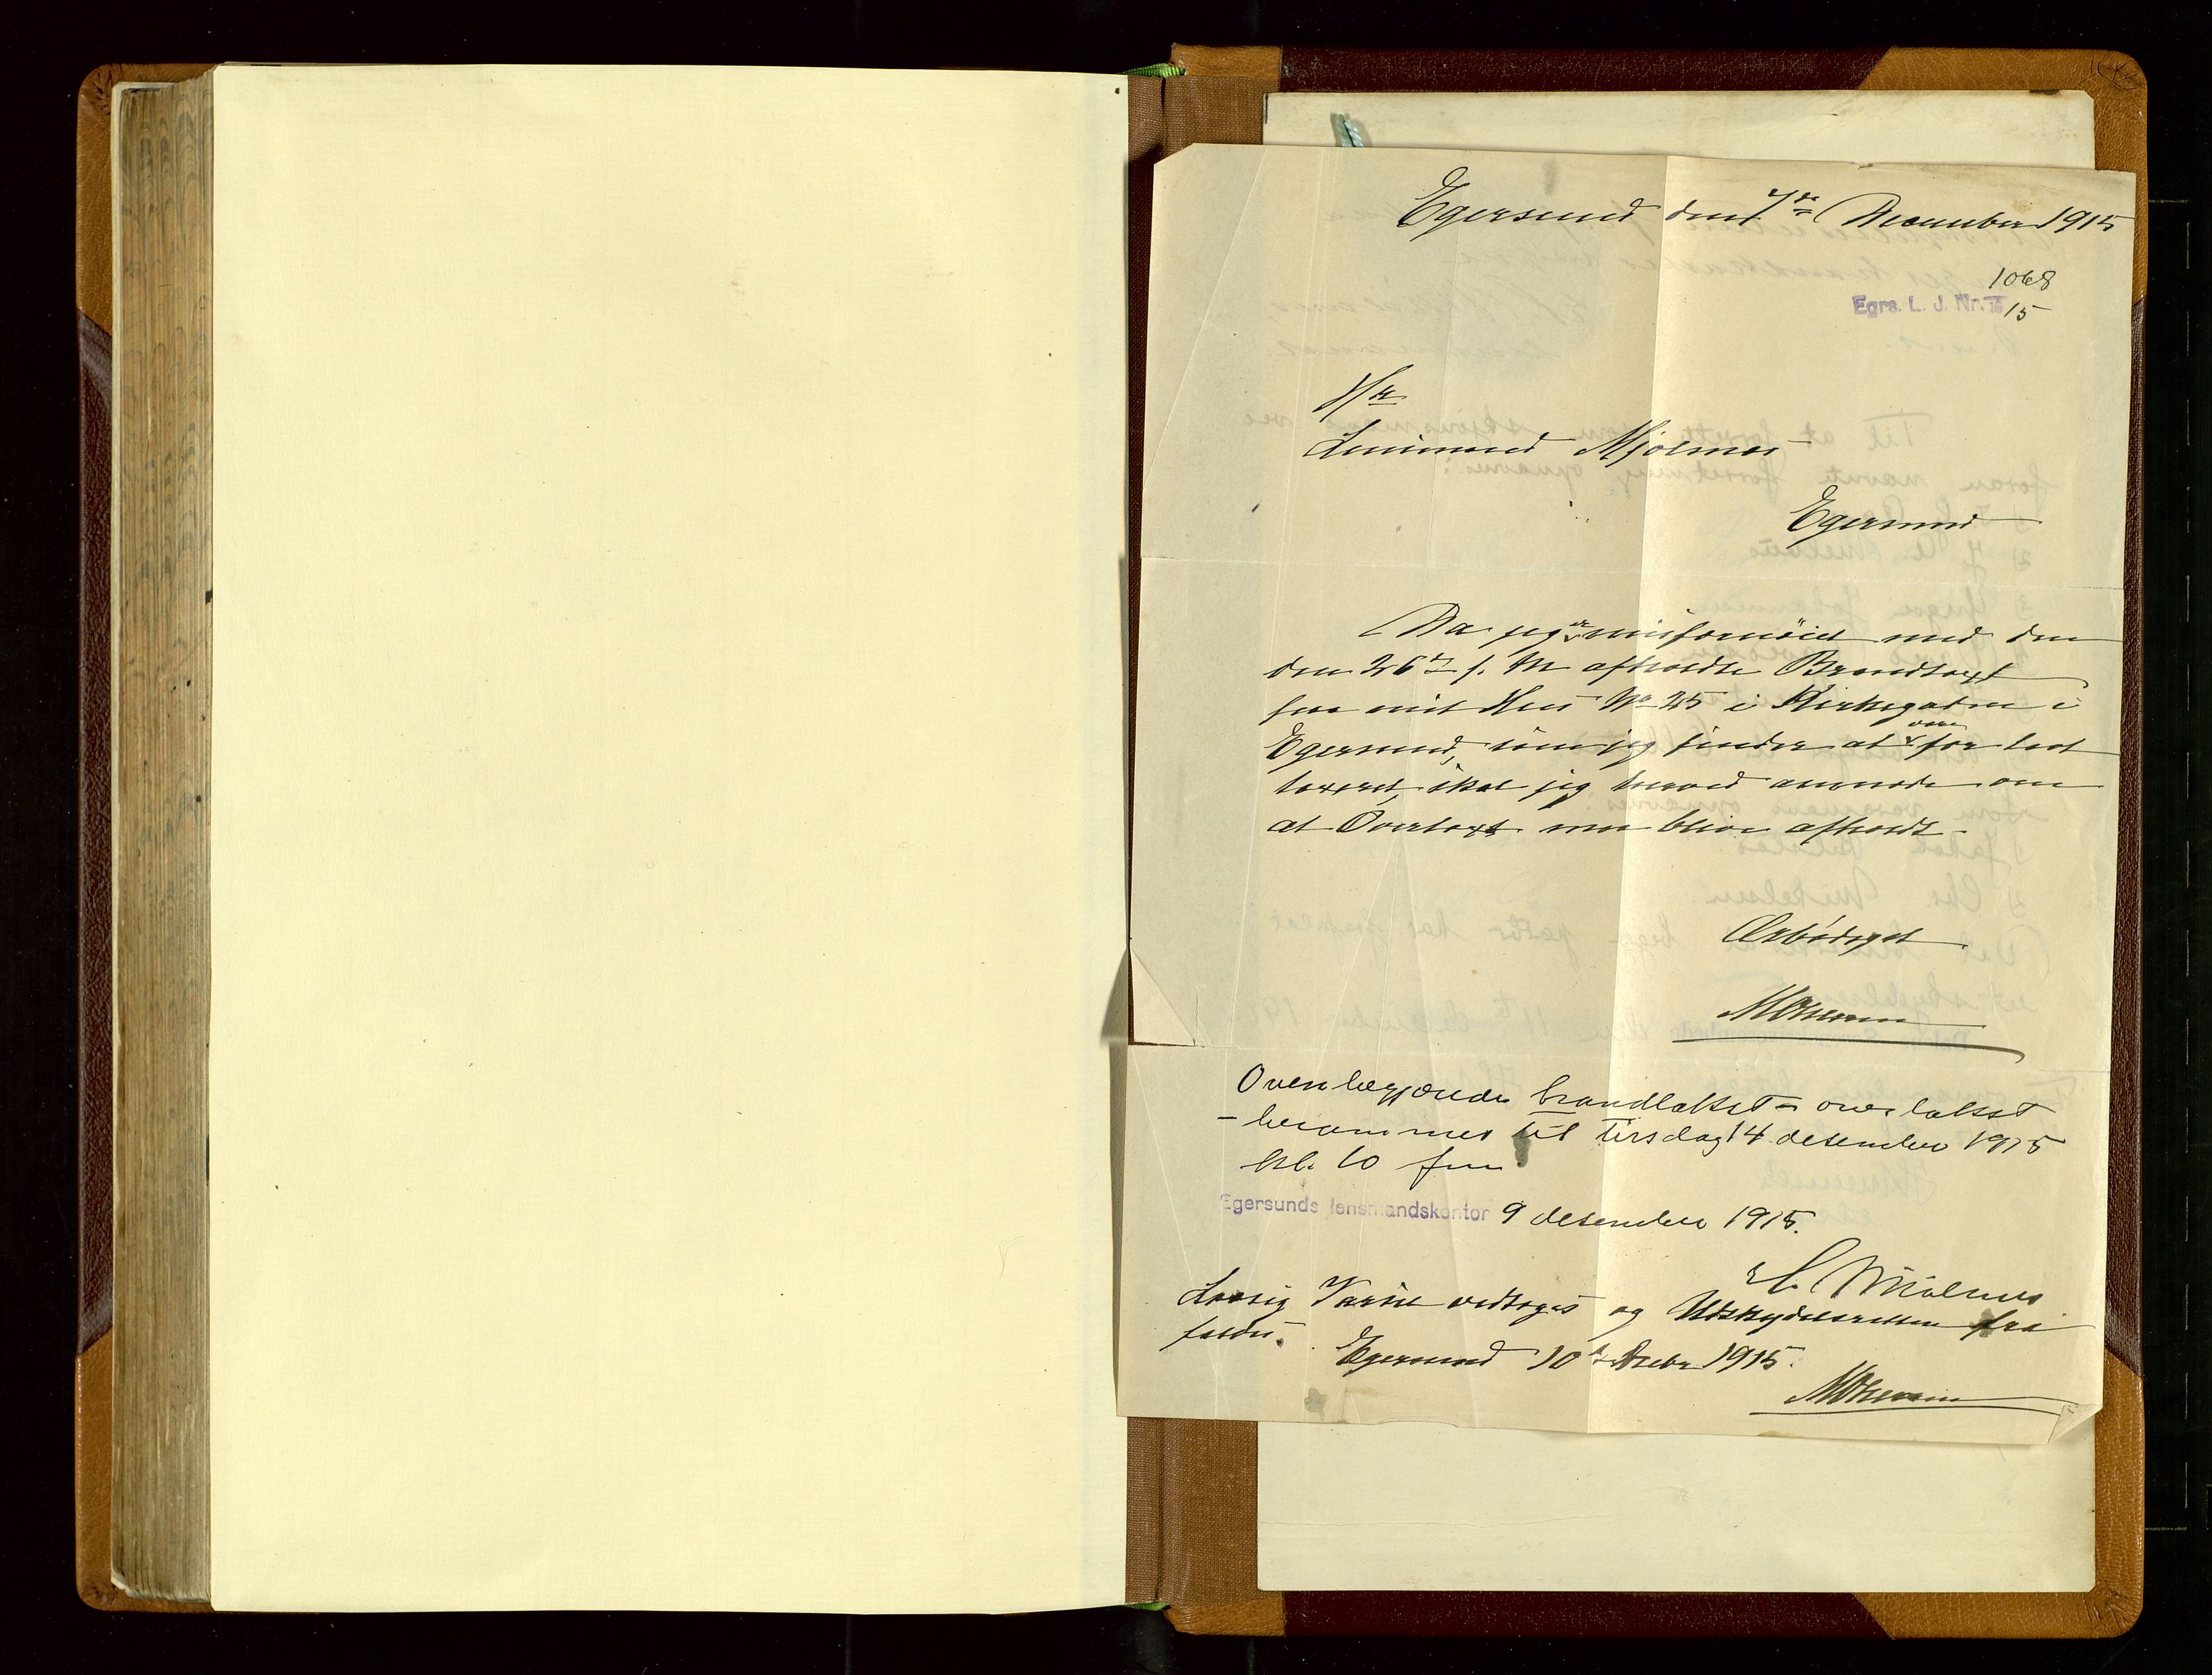 Egersund den 7de December 1915
1068
Egrs. L. J. Nr. 15
Hr
Lensmand Mjølnes
Egersund
Da jeg er misfornöiet med den
den 26de f. M afholdte Brandtaxt
paa mit Hus No 25 i Kirkegaten i
Egersund, som jeg finder at være for lavt
taxeret, skal jeg herved anmode om
at Overtaxt maa blive afholdt.
Ærbödigst
Ovenbegjærede brandtakst - overtakst
- berammes til tirsdag 14 desember 1915
kl. 10 fm
Egersunds lensmandskontor 9 desember 1915.
Mjølnes
Lovlig Varsel vedtages og Utskydelsretten fra
faldes.
Egersund 10de Decbr 1915.